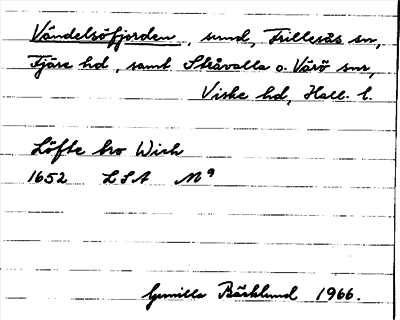 Vändelsöfjorden, sund, Frillesås sn,
Fjäre hd, samt Stråvalla o. Värö snr,
Viske hd, Hall. l.
Löfte bro Wich
1652 LSA N9
Gunilla Bäcklund 1966.